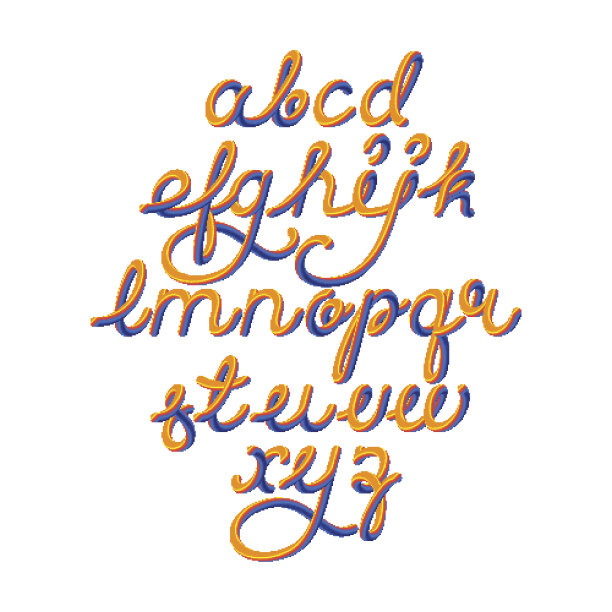 abcd
efghijk
lmnopqr
stuvw
xyz